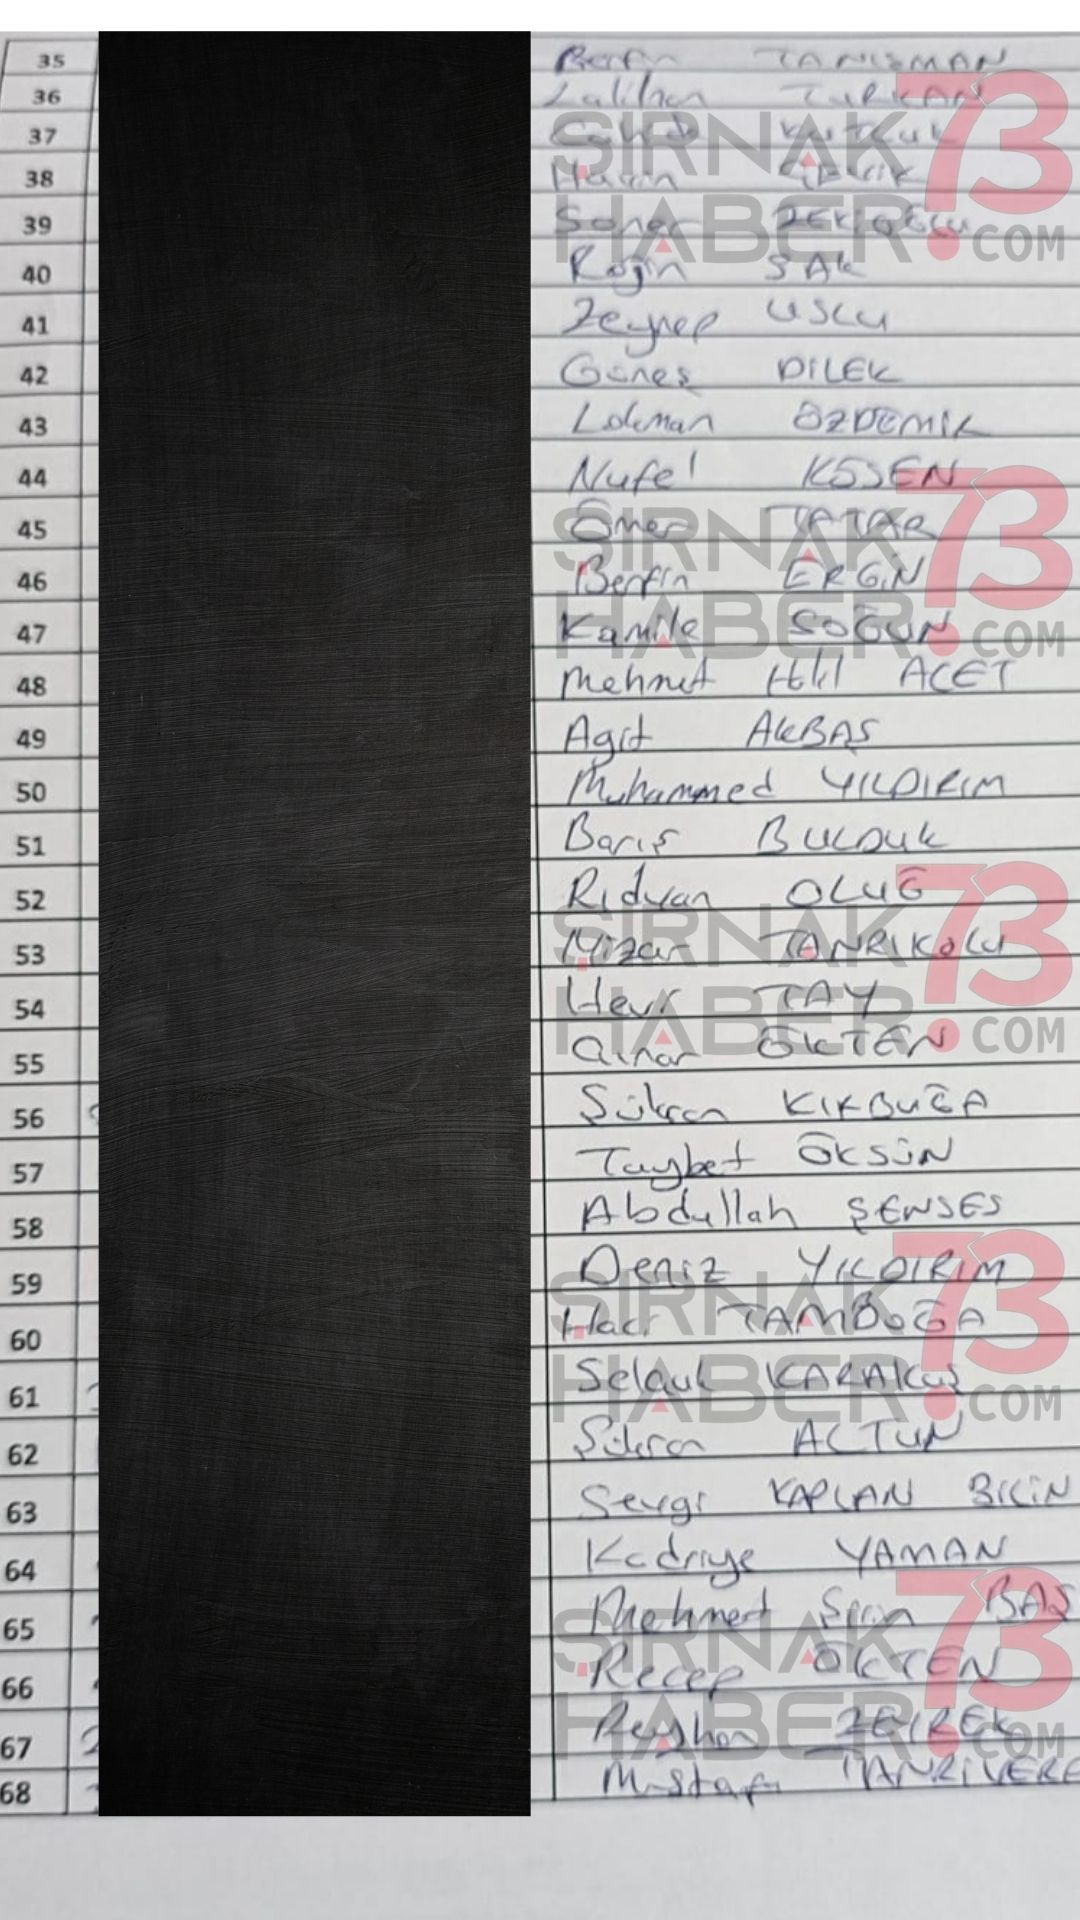 35 Berfin TANIŞMAN
36 Lalihan TURKAN
37
38 Havin
39 Soner ZEKİOĞLU
40 Rojin SAK
41 Zeynep USLU
42 Güneş DİLEK
43 Lokman ÖZDEMİR
44 Nufel KÖSEN
45 Ömer TATAR
46 Berfin ERGİN
47 Kamile SOĞUN
48 Mehmet Halil ACET
49 Agit AKBAŞ
50 Muhammed YILDIRIM
51 Barış BULDUK
52 Rıdvan OLUĞ
53 Mizan TANRIKOLU
54 TAY
55 ÖKTEN
56 Şükran KIRBUĞA
57 Taybet ÖKSÜN
58 Abdullah ŞENSES
59 Deniz YILDIRIM
60 Hacı TAMBOĞA
61 Selçuk KARAKUŞ
62 Şükran ALTUN
63 Sevgi KAPLAN BİLİN
64 Kadriye YAMAN
65 Mehmet Şirin BAŞ
66 Recep ÖKTEN
67 Reyhan ZEYREK
68 Mustafa TANRIVER
ŞIRNAK 73
HABER.COM
ŞIRNAK 73
HABER.COM
ŞIRNAK 73
HABER.COM
ŞIRNAK 73
HABER.COM
ŞIRNAK 73
HABER.COM